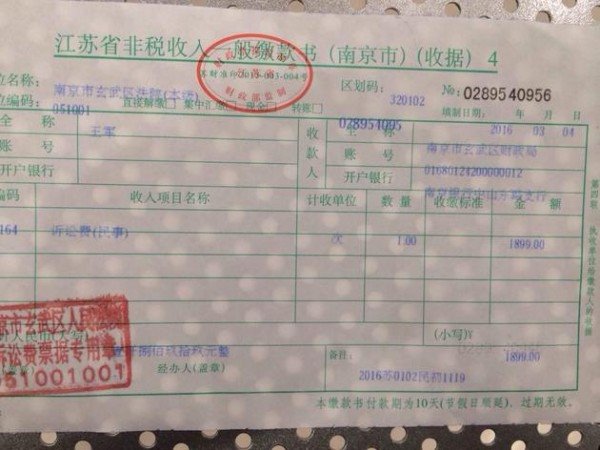 江苏省非税收入一般缴款书（南京市）（收据） 4
苏财准印2015-003-004号
财政部监制
位名称: 南京市玄武区法院(本级)
区划码: 320102
No: 0289540956
位编码: 051001 直接解缴□ 集中汇缴□ 现金□ 转账□
填制日期: 年 月 日
2016 03 04
全 称 王军
028954095
收款人
全 称 南京市玄武区财政局
账 号
账 号 01680124200000012
开户银行
开户银行
编码 收入项目名称 计收单位 数 量 收缴标准 金 额
164 诉讼费(民事) 次 1.00 1899.00
京市玄武区人民法院
诉讼费票据专用章
51001001
人民币(大写) 壹仟捌佰玖拾玖元整
(小写)¥ 1899.00
经办人(盖章)
备注:
2016苏0102民初1119
本缴款书付款期为10天(节假日顺延)，过期无效。
第四联 执收单位给缴款人的收据